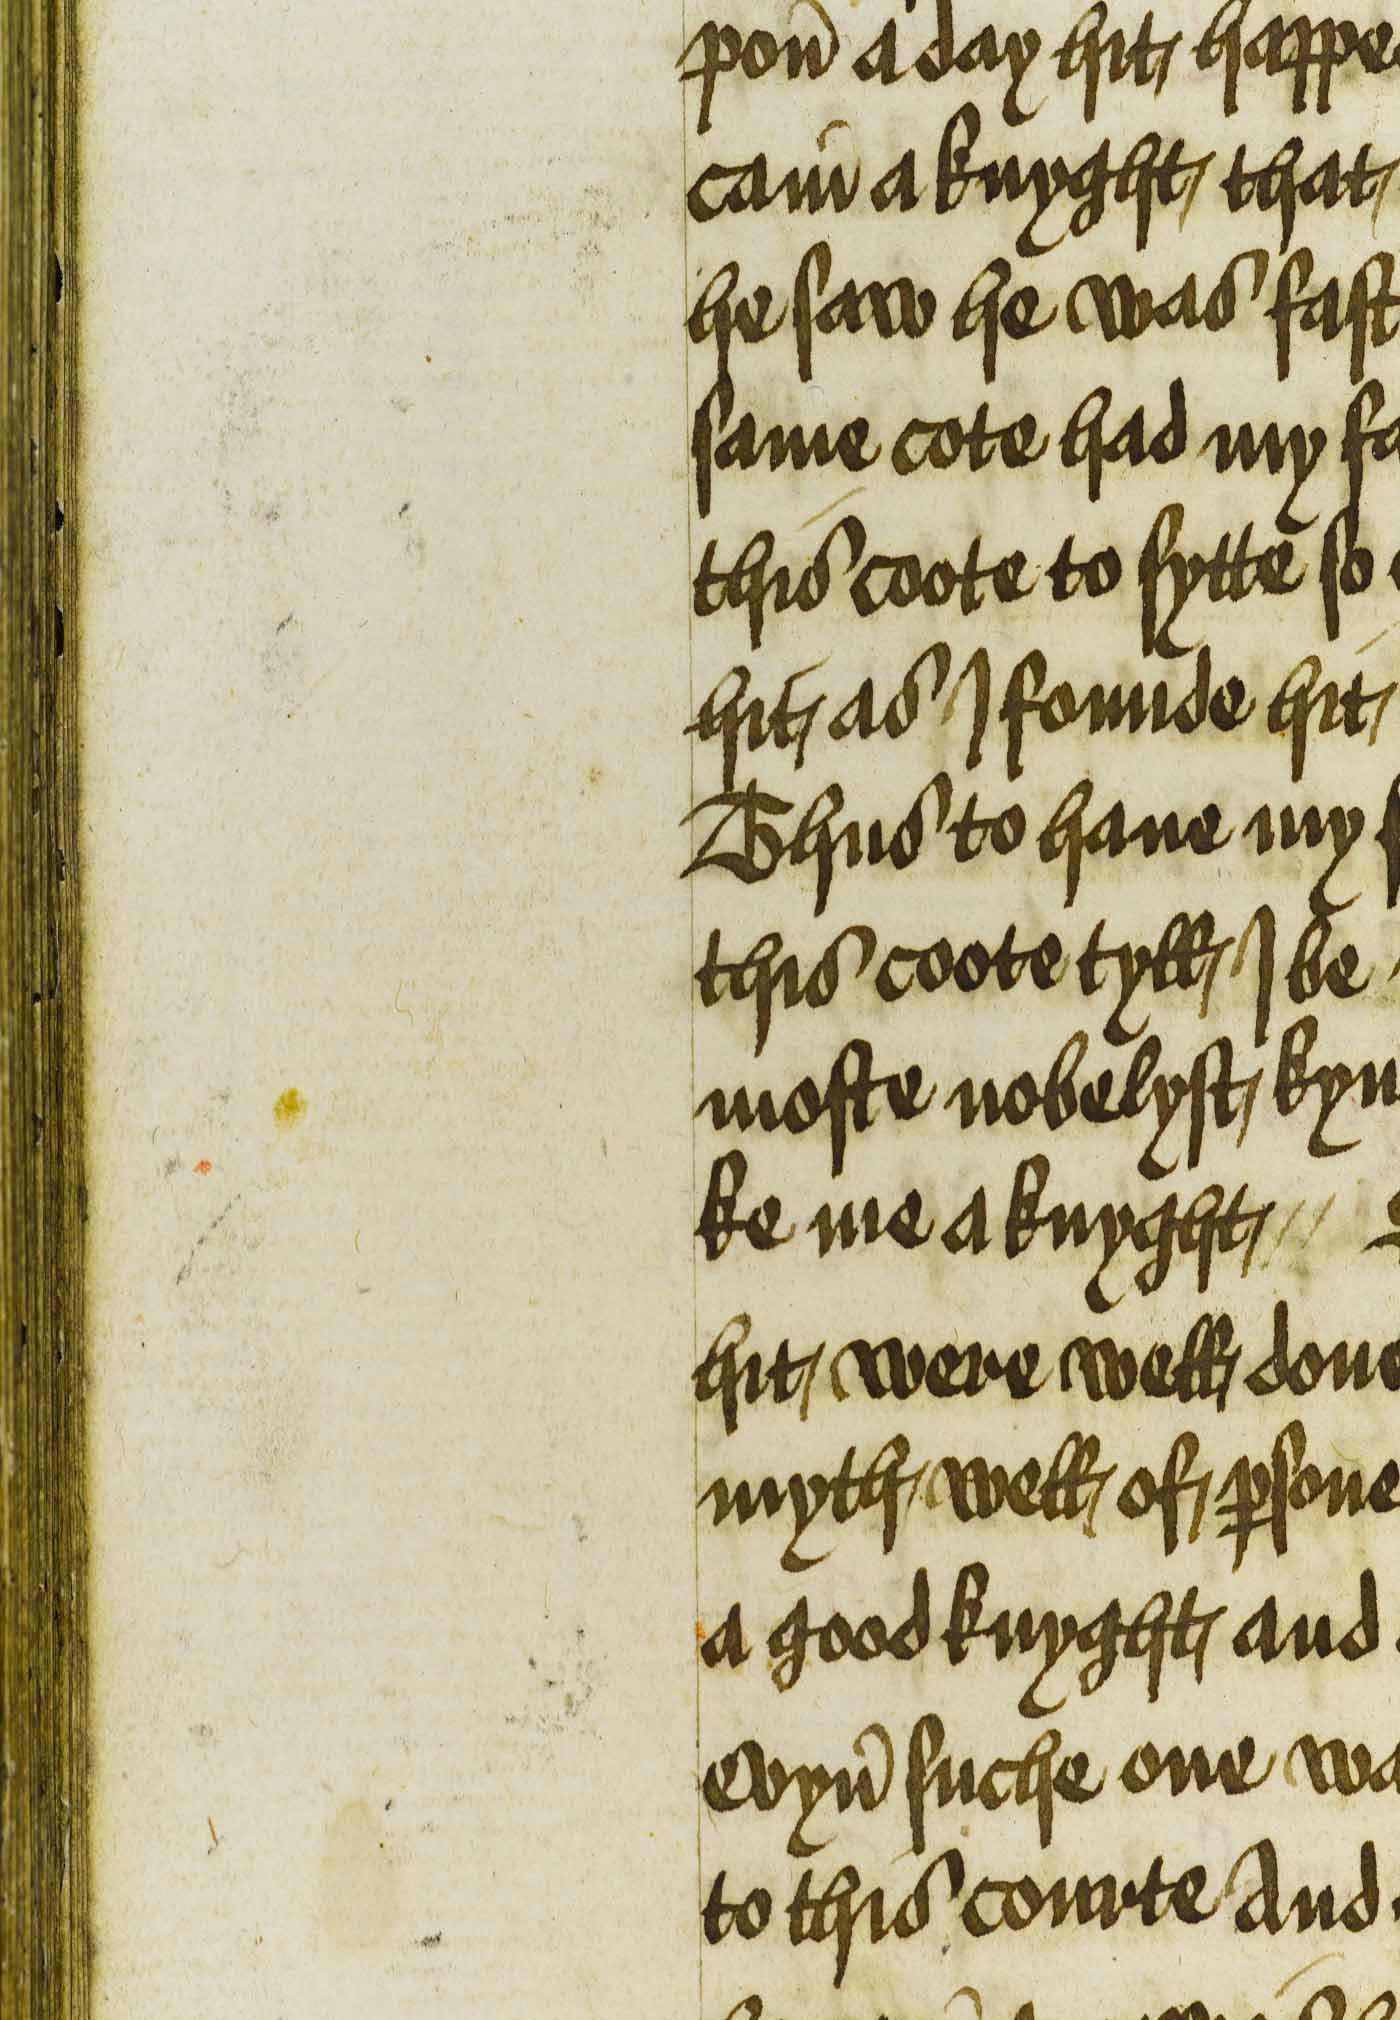 pon a day hit happe
cam a knyght that
he saw he was fast
same cote had my fa
this coote to sytte so
hit as I founde hit
Thus to haue my
this coote tyll I be
moste nobelyst kyn
ke me a knyght //
hit were well done
myth well of psone
a good knyght and
evyn suche one wa
to this courte And